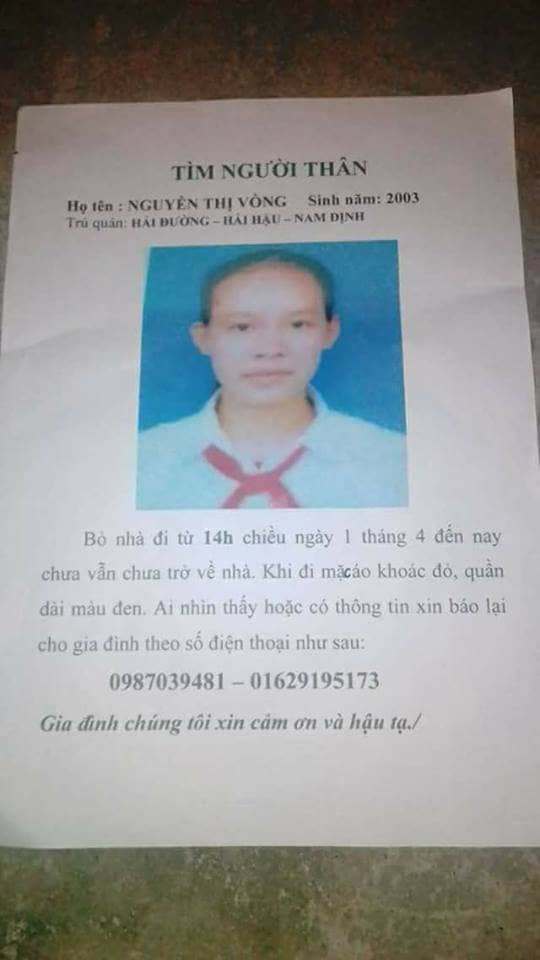 TÌM NGƯỜI THÂN
Họ tên : NGUYỄN THỊ VÒNG Sinh năm: 2003
Trú quán: HẢI ĐƯỜNG – HẢI HẬU – NAM ĐỊNH
Bỏ nhà đi từ 14h chiều ngày 1 tháng 4 đến nay
chưa vẫn chưa trở về nhà. Khi đi mặcáo khoác đỏ, quần
dài màu đen. Ai nhìn thấy hoặc có thông tin xin báo lại
cho gia đình theo số điện thoại như sau:
0987039481 – 01629195173
Gia đình chúng tôi xin cảm ơn và hậu tạ./